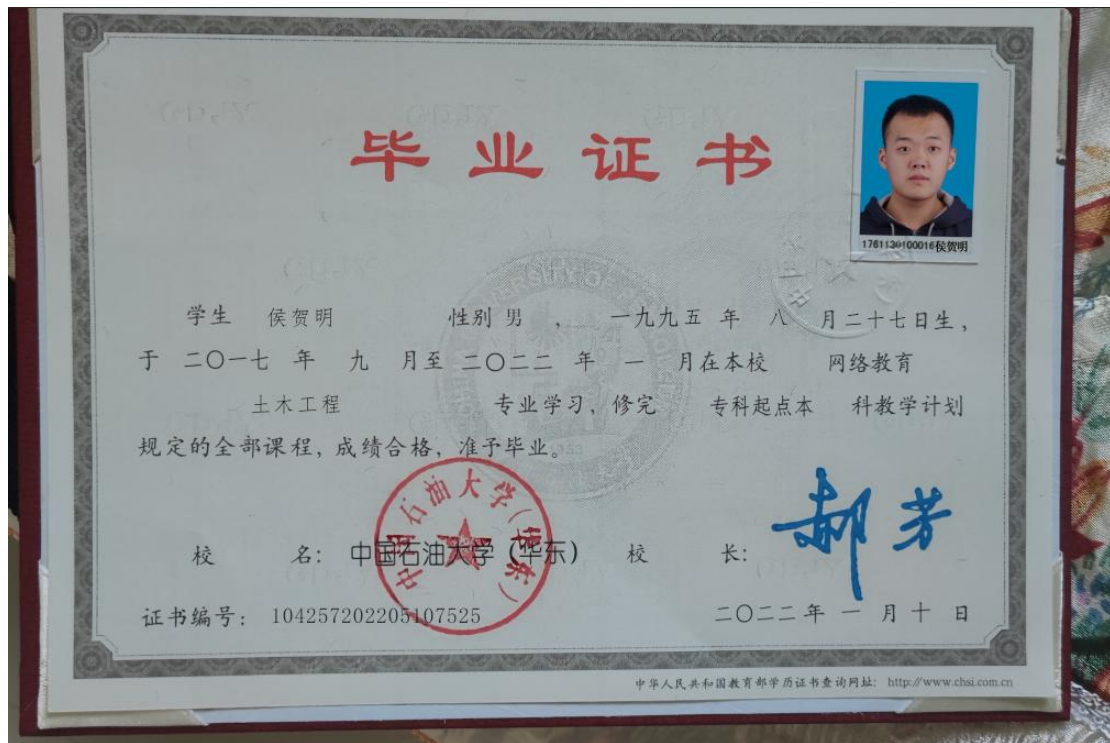 毕业证书
1761130100016侯贺明
学生 侯贺明 性别 男 , 一九九五 年 八 月二十七日生,
于 二〇一七 年 九 月至 二〇二二 年 一 月在本校 网络教育
土木工程 专业学习, 修完 专科起点本 科教学计划
规定的全部课程, 成绩合格, 准予毕业。
中国石油大学(华东)
校 名: 中国石油大学 (华东) 校 长: 郝芳
证书编号: 104257202205107525 二〇二二 年 一 月 十 日
中华人民共和国教育部学历证书查询网址: http://www.chsi.com.cn